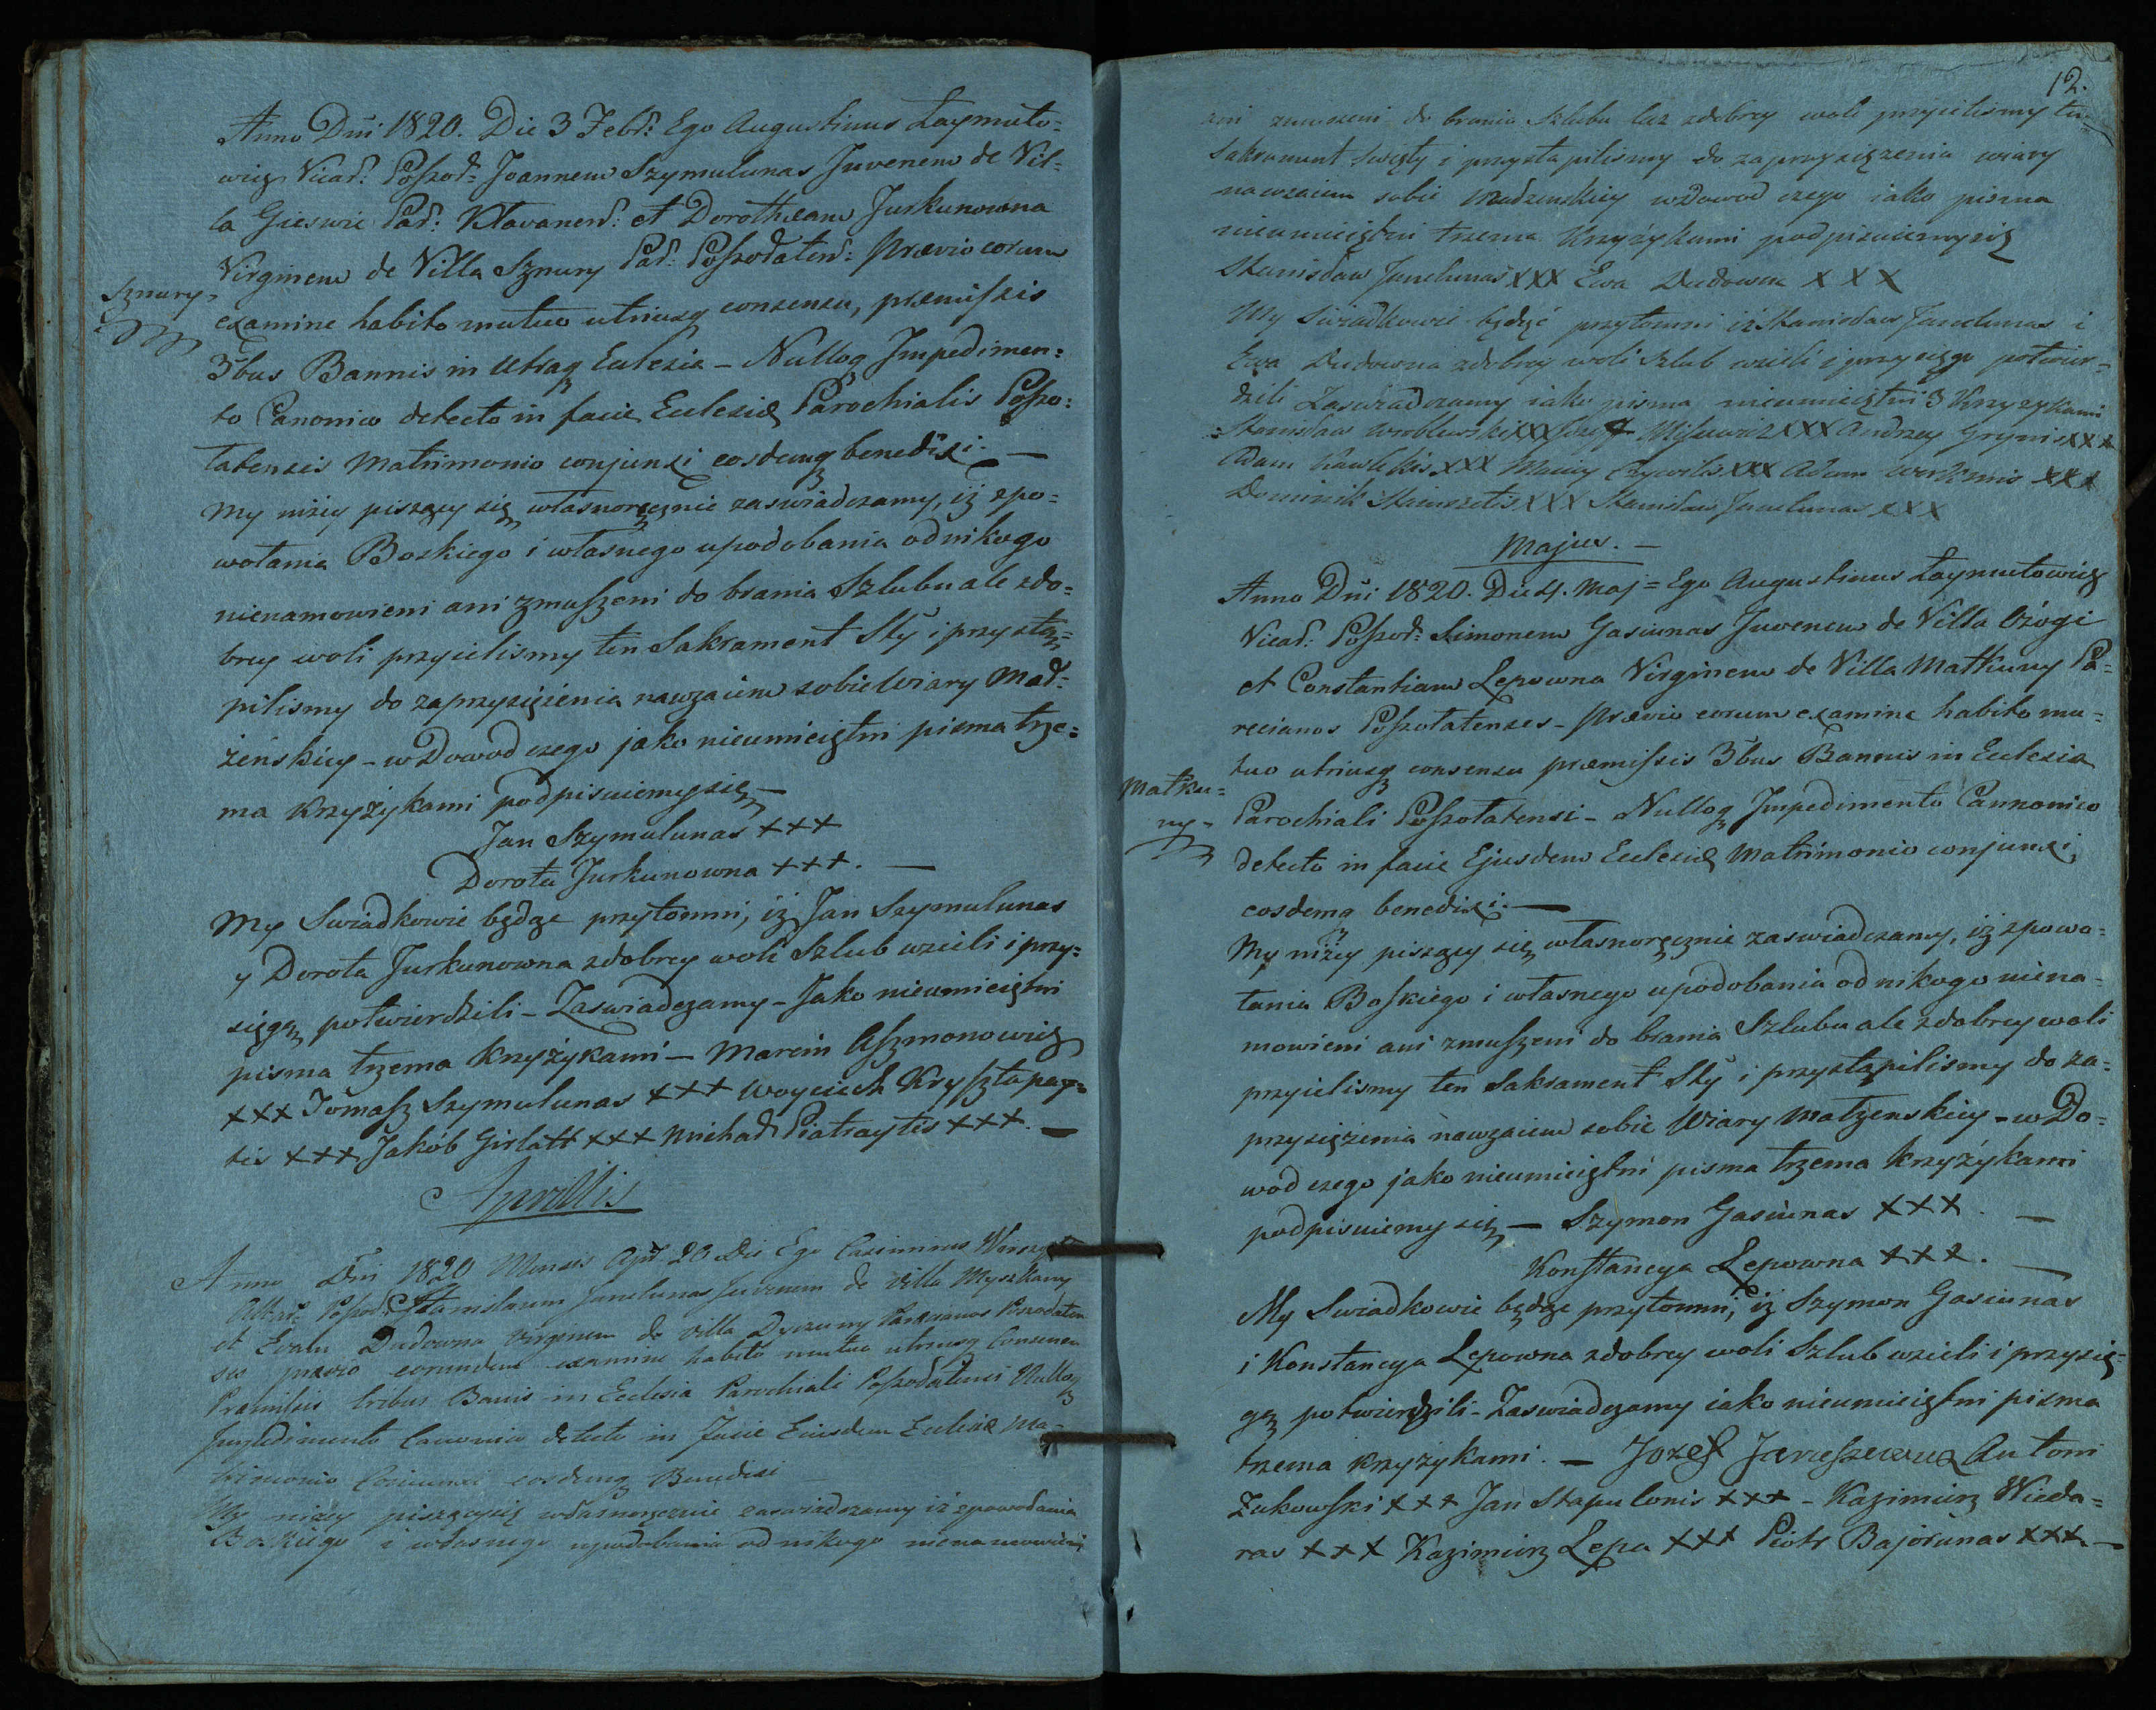 Anno Dńi 1820. Die 3 Febr: Ego Augustinus Łaymuto=
wicz Vicar: Poszod: Joannem Szymulunas Juvenem de Vil=
la Gieswie Par: Kławaner: et Dorotheam Jurkunowna
Virginem de Villa Sznury Par: Poszodaten: Prævio eorum
Sznury
examine habito mutuo utriusq consensu, præmissis
3bus Bannis in utraq Eulesia – Nulloq Impedimen=
to Canonico detecto in facie Ecclesiæ Parochialis Poszo=
tatensis Matrimonio conjunxi eosdemq benedixi. —
My niżey piszący się własnoręcznie zaswiadczamy, iż zpo=
wołania Boskiego i własnego upodobania odnikogo
nienamowieni ani zmuszeni do brania Szlubu ale zdo=
brey woli przyielismy ten Sakrament Sty i przystą=
pilismy do zaprzysiężenia nawzaiem sobie Wiary Mał=
żeńskiey – w Dowod czego jako nieumieiętni pisma trze=
ma Krzyżykami podpisuiemysię –
Jan Szymulunas +++
Dorota Jurkunowna +++. —
My Swiadkowie będąc przytomni, iż Jan Szymulunas
y Dorota Jurkunowna zdobrey woli Szlub wzieli i przy=
sięgą potwierdzili – Zaswiadczamy – Jako nieumieiętni
pisma trzema Krzyżykami – Marcin Aszmonowicz
+++ Tomasz Szymulunas +++ Woyciech Krysztopay=
tis +++ Jakób Girlatt +++ Michał Piatraytis +++. —
Aprillis
Anno Dni 1820 Mensis Apr 20 Die Ego Casimirus
Altar: Poszod: Stanislaum Junelunas Juvenem de Villa Myszkany
et Evam Dudowna Virginem de Villa Dyrzuny Parecianos Poszodaten
ses previo eorundem examine habito mutuo utriusq Consensu
Præmissis tribus Banis in Ecclesia Parochiali Poszodatensi Nulloq
Impedimento Canonico detecto in Facie Eiusdem Eclesiæ Ma=
trimonio Coniunxi eosdemq Benedixi
My niżey piszącysię własnoręcznie zaswiadczamy iż zpowołania
Boskiego i własnego upodobania od nikogo nienamowieni
12.
ani zmuszeni do brania Szlubu lecz zdobrey woli przyielismy ten
Sakrament Swięty i przystąpilismy do zaprzysiężenia wiary
nawzaiem sobie Małżenskiey wdowod czego iako pisma
nieumieiętni trzema Krzyżykami podpisuiemysię
Stanisław Junelunas XXX Ewa Dudowna X X X
My Swiadkowie będąc przytomni iż Stanisław Junelunas i
Ewa Dudowna zdobrey woli Szlub wzieli i przysięgą potwier=
dzili Zaswiadczamy iako pisma nieumieiętni 3 Krzyżykami
Stanisław Wroblewski XXX Jozef Misiewicz XXX Andrzey Grynis XXX
Adam Kawlekis XXX Maciey XXX Adam XXX
Dominik XXX Stanisław Junelunas XXX
Majus. —
Anno Dńi 1820. Die 4. Maj= Ego Augustinus Łaymutowicz
Vicar: Poszod: Simonem Gasiunas Juvenem de Villa Ożogi
et Constantiam Lepowna Virginem de Villa Matkuny Pa=
recianos Poszotatenses – Prævio eorum examine habito mu=
tuo utriusq consensu præmissis 3bus Bannis in Eulesia
Matku=
ny
Parochiali Poszotatensi – Nulloq Impedimento Cannonico
detecto in facie Ejusdem Ecclesiæ Matrimonio conjunxi,
eosdemq benedixi. —
My niżey piszący się własnoręcznie zaswiadczamy, iż zpowo=
łania Boskiego i własnego upodobania od nikogo niena=
mowieni ani zmuszeni do brania Szlubu ale zdobrey woli
przyielismy ten Sakrament Sty i przystąpilismy do za=
przysiężenia nawzaiem sobie Wiary Małżenskiey – w Do=
wod czego jako nieumieiętni pisma trzema Krzyżykami
podpisuiemy się — Szymon Gasiunas +++. —
Konstancya Lepowna +++. —
My Swiadkowie będąc przytomni, iż Szymon Gasiunas
i Konstancya Lepowna zdobrey woli Szlub wzieli i przysię=
gą potwierdzili – Zaswiadczamy iako nieumieiętni pisma
trzema Krzyżykami. — Jozef Antoni
Żukowski +++ Jan Stapulonis +++ – Kazimierz Wieda=
ras +++ Kazimierz Lepa +++ Piotr Bajorunas +++ —